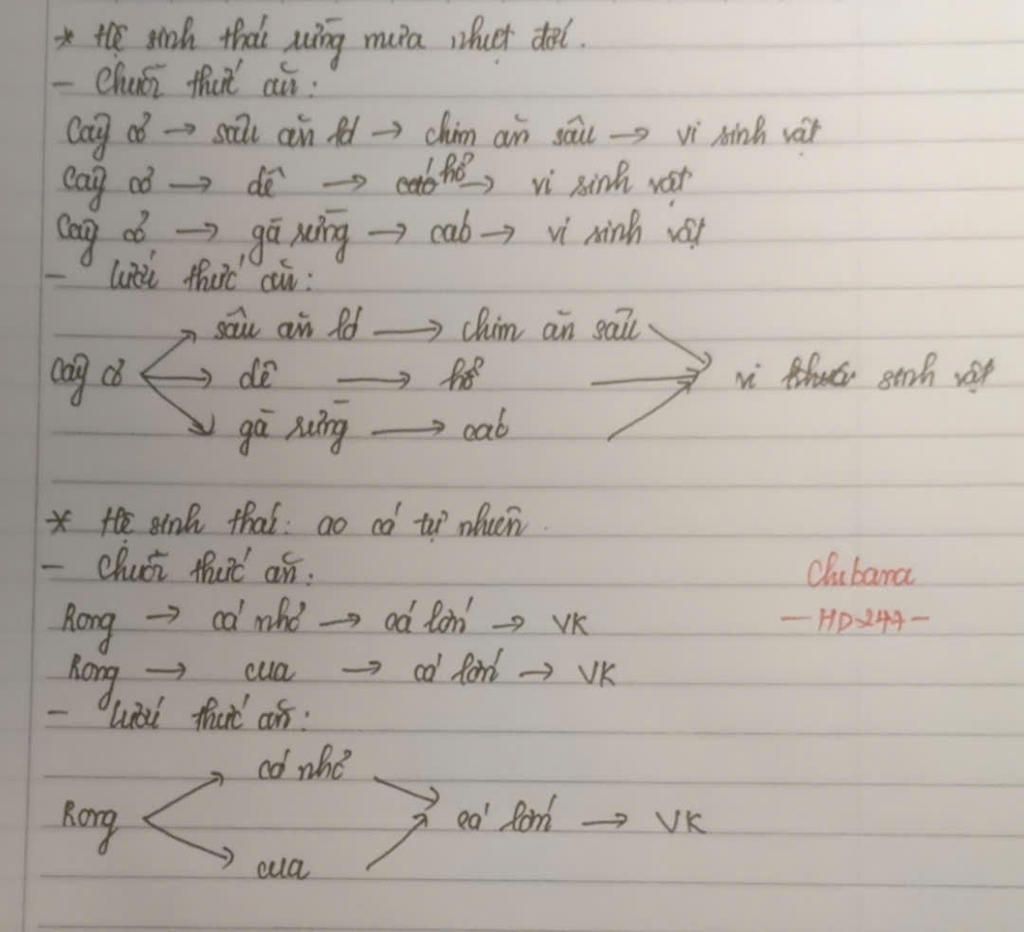 * Hệ sinh thái rừng mưa nhiệt đới.
- Chuỗi thức ăn:
Cây cỏ → sâu ăn lá → chim ăn sâu → vi sinh vật
Cây cỏ → dê → hổ → vi sinh vật
Cây cỏ → gà rừng → cáo → vi sinh vật
- lưới thức ăn:
sâu ăn lá → chim ăn sâu
Cây cỏ dê → hổ → vi sinh vật
gà rừng → cáo
* Hệ sinh thái: ao cá tự nhiên.
- Chuỗi thức ăn:
Chibana
Rong → cá nhỏ → cá lớn → VK
Rong → cua → cá lớn → VK
- lưới thức ăn:
cá nhỏ
Rong cá lớn → VK
cua